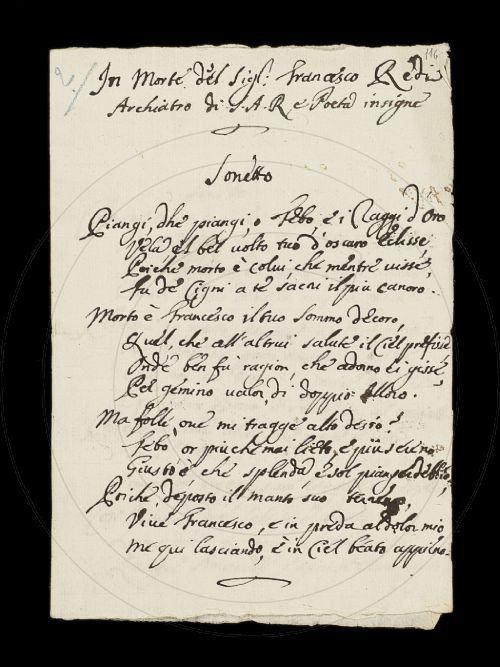 116
2
In Morte del Sigr. Francesco Redi
Archiatro di S.A.R e Poeta insigne
Sonetto
Piangi, dhe piangi, o Febo, e i Raggi d'Oro
Vela el bel volto tuo d'oscuro Eclisse,
Poiche morto è colui, che mentre visse,
Fu de Cigni a te sacri il piu canoro.
Morto è Francesco il tuo sommo decoro,
Quel, che all'altrui salute il Ciel prefisse
Onde ben fù ragion, che adorno ei gisse
Pel gemino valor, di doppio Alloro.
Ma folle, oue mi tragge alto desio?
Febo, or piu che mai lieto, e piu sereno
Giusto è che splenda e sol pianger degg'io,
Poiche, deposto il manto suo terreno,
Viue Francesco, e in preda al dolor mio
Me qui lasciando, è in Ciel beato appieno.